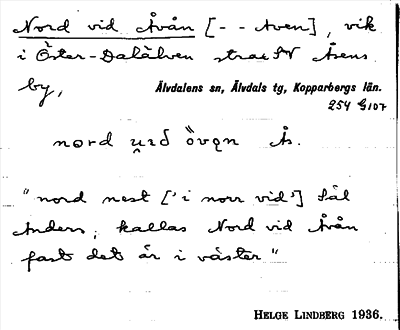 Nord vid Åvån [- - Åven], vik
i Öster-Dalälven strax N Åsens
by,
Älvdalens sn, Älvdals tg, Kopparbergs län.
254 G107
nord
Ås.
"nord nest ['i norr vid'] Sål
Anders, kallas Nord vid Åvån
fast det är i väster"
HELGE LINDBERG 1936.